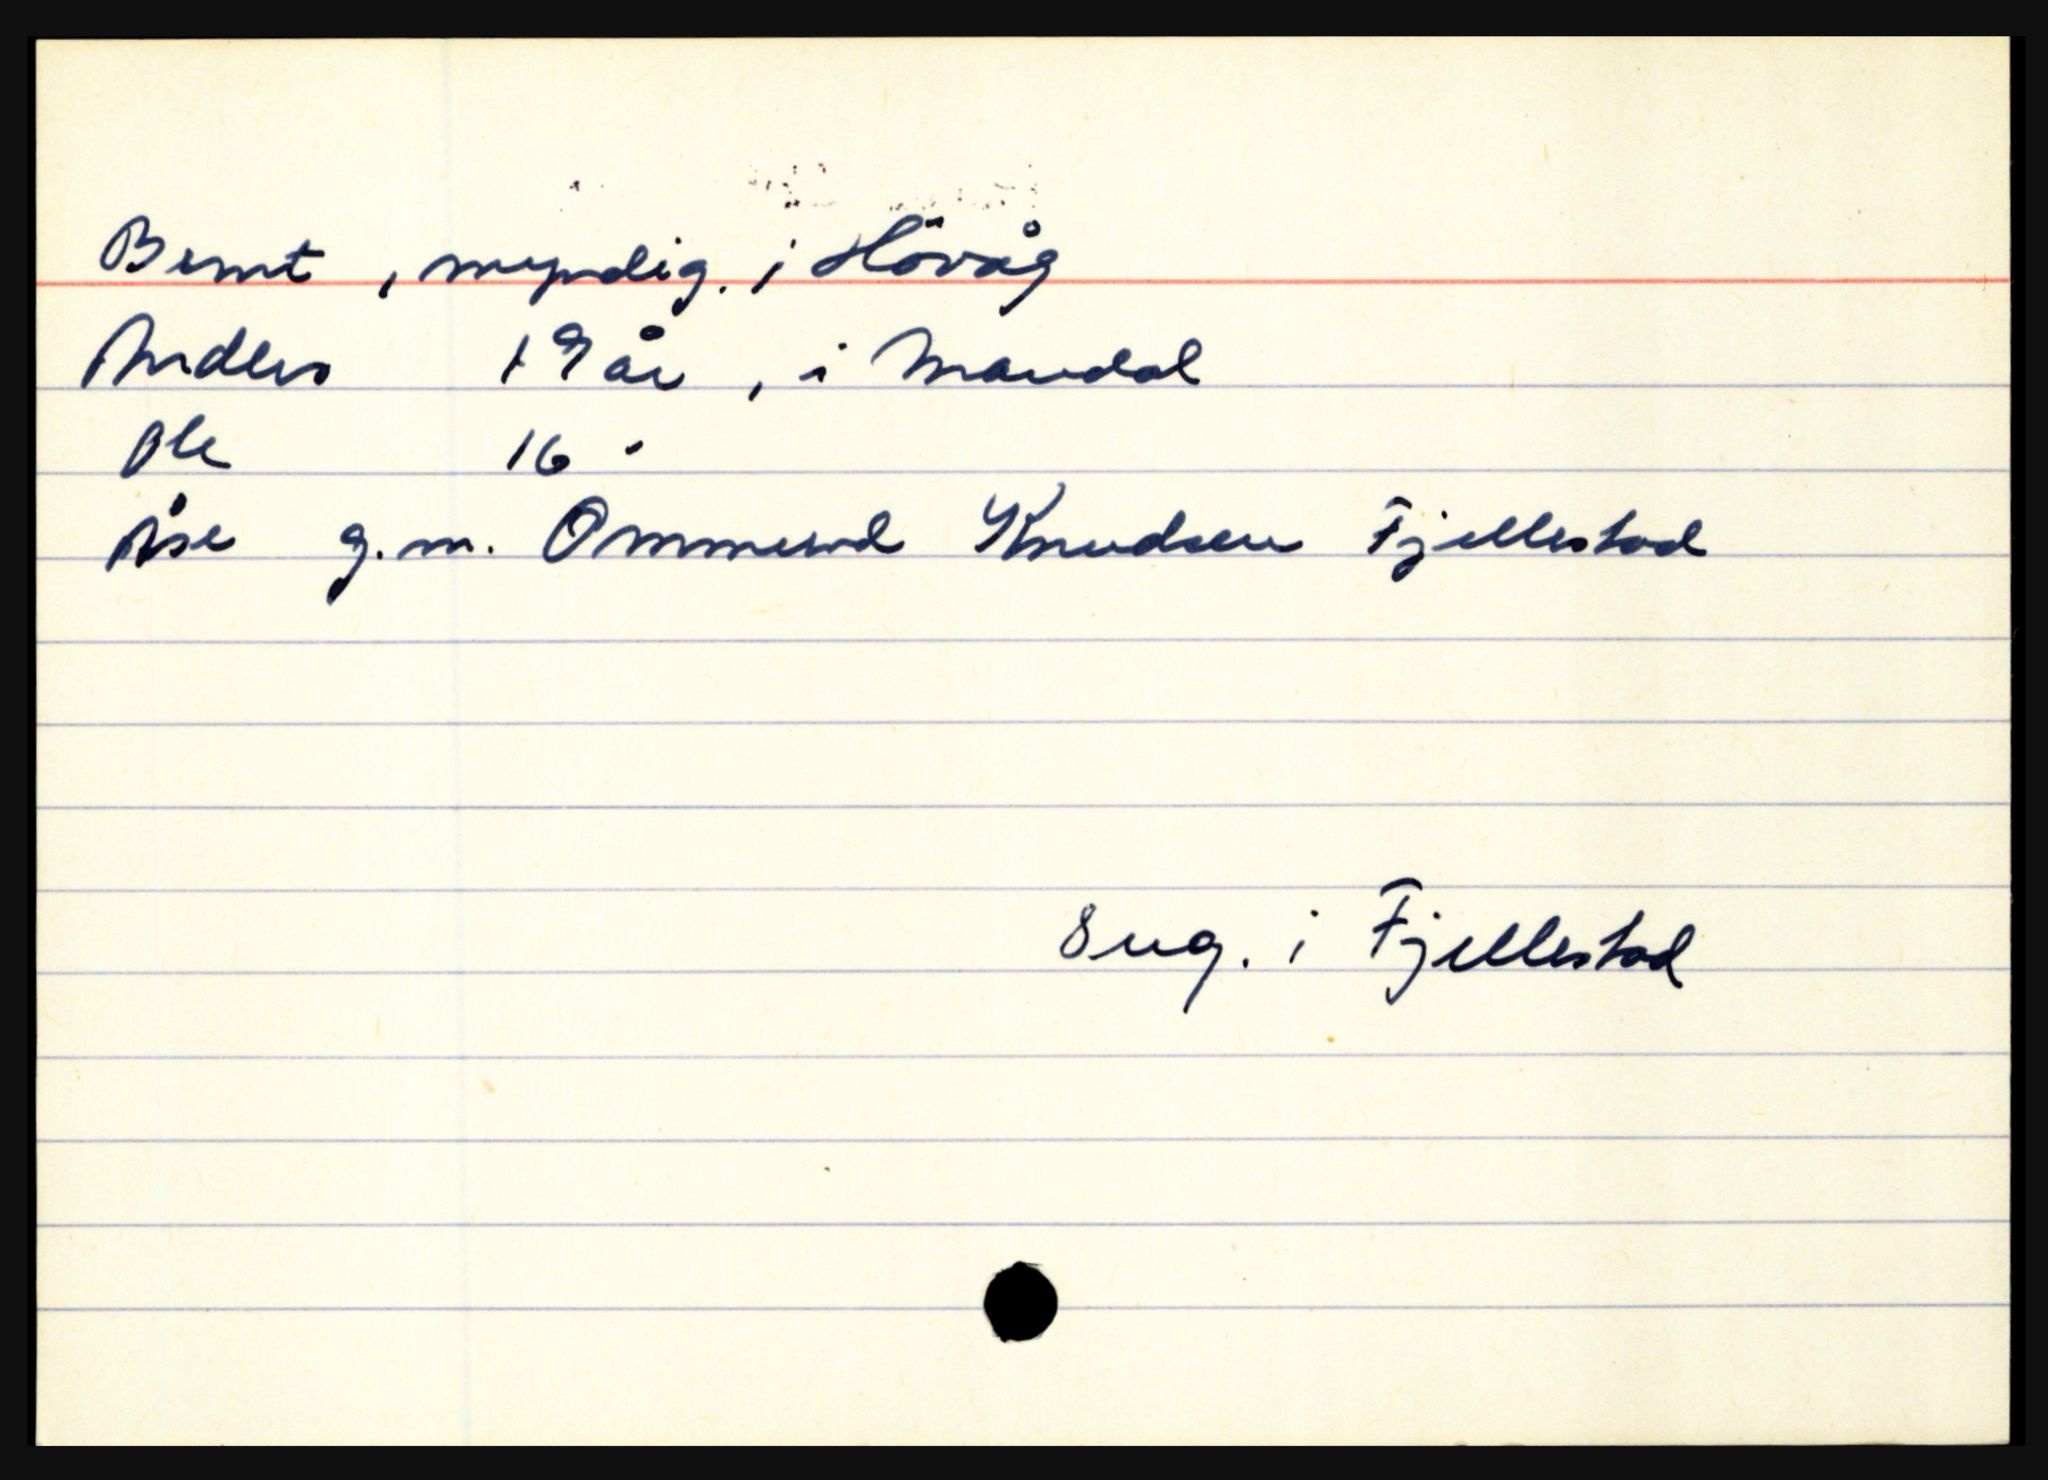 Bernt , myndig. i Hövåg
Anders 19 år , i Mandal
Ole 16 "
Åse g.m. Ommund Knudsen Fjellestad
8 ug. i Fjellestad